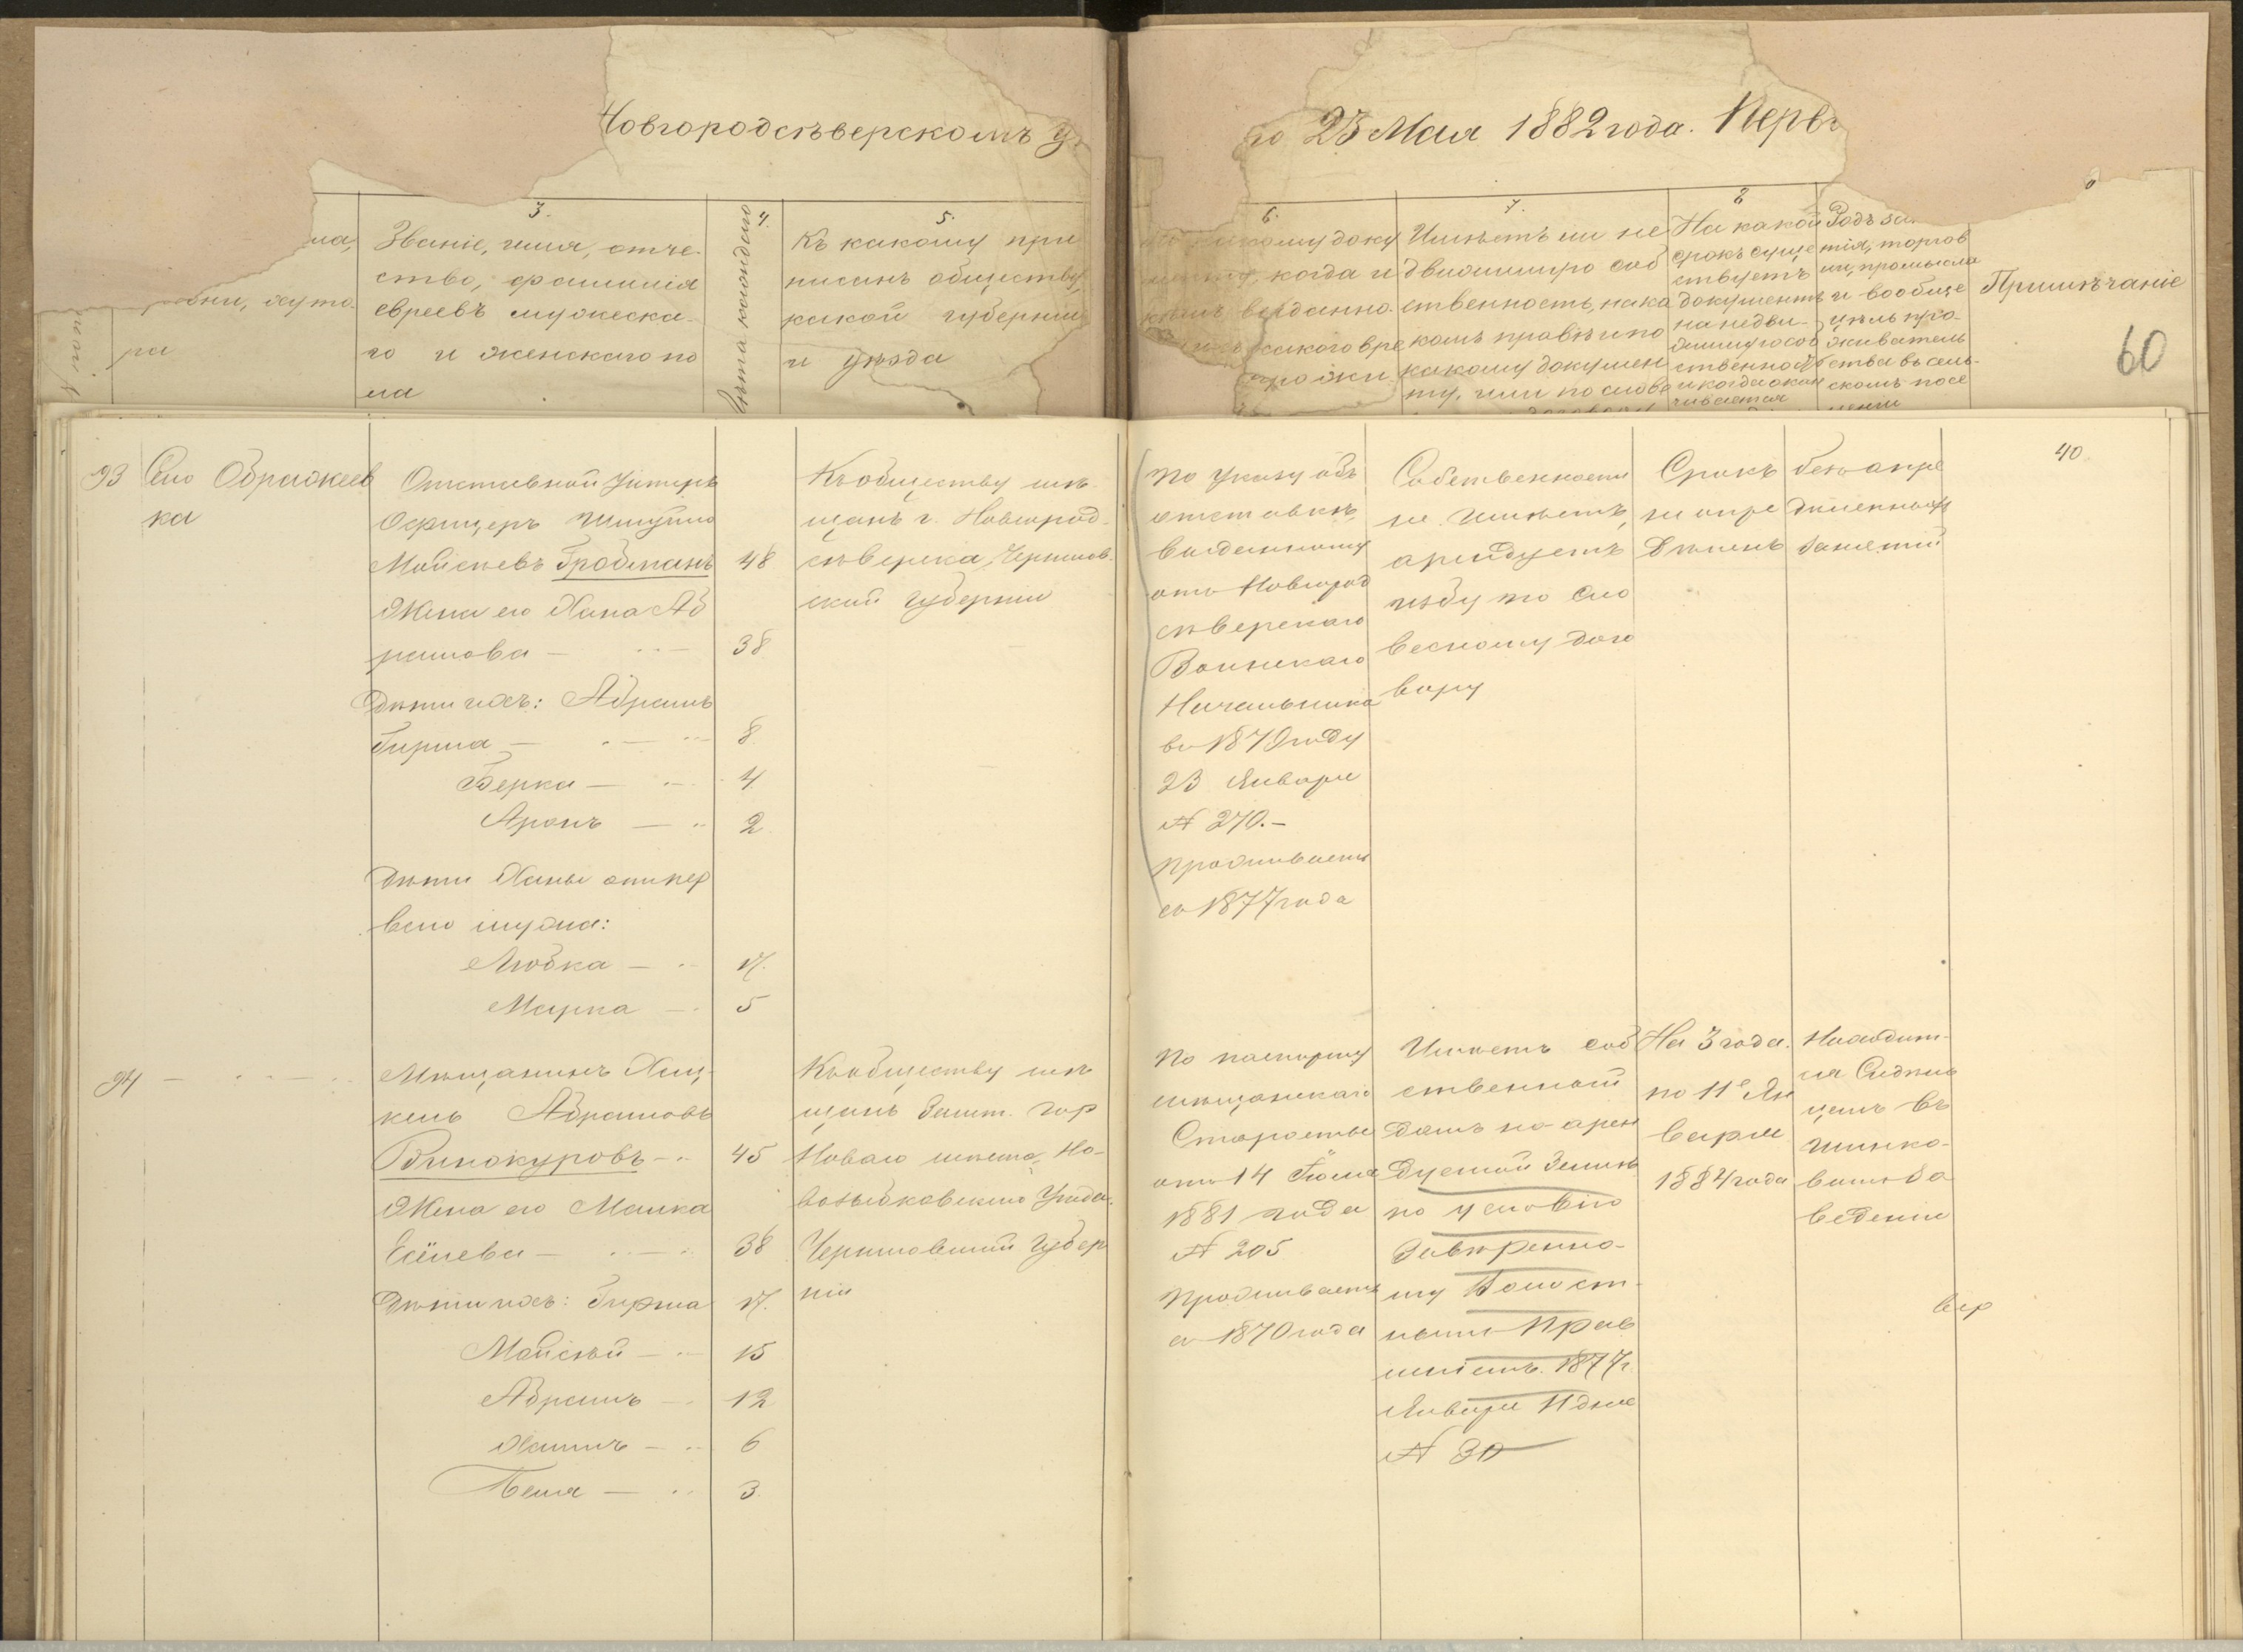 Новгородсѣверскомъ у
го 23 Мая 1882 года. Перв
3.
Званіе, имя, отче-
ство, фамилія
евреевъ мужеска-
го и женскаго по
ла
4.
Лѣта каждаго
5.
Къ какому при
писанъ обществу,
какой губерніи
и уѣзда
ма,
вни, хуто-
ра
№ по
6.
какому доку
менту, когда и
кѣмъ выданно-
какого вре
прожи
7.
Имѣетъ ли не
движимую соб
ственность, на ка
комъ правѣ и по
какому докумен
ту, или по слове
8
На какой
срокъ суще
ствуетъ
документъ
на недви-
жимую соб
ственность
и когда окан
чивается
Родъ за
тія, торгов
ли, промысла
и вообще
цѣль про-
живатель
ства въ сель-
скомъ посе
леніи
Примѣчаніе
60
40
93
Село Ображеев
ка
Отставной Унтеръ
Офицеръ Шмуйло
Мойсеевъ Гробманъ 48
Жена его Хана Аб
рамова — 38
Дѣти ихъ: Абрамъ
Гирша — 8
Берка — 4
Аронъ — 2
Дѣти Ханы отъ пер
ваго мужа:
Любка — 17.
Марка — 5
Къ обществу мѣ-
щанъ г. Новгород-
сѣверска, Чернигов-
ской губерніи
По указу объ
отставкѣ,
выданному
отъ Новгород
сѣверскаго
Воинскаго
Начальника
въ 1870 году
23 Января
№ 270.—
Проживаетъ
съ 1877 года
Собственности
не имѣетъ,
арендуетъ
избу по сло
весному дого
вору
Срокъ
не опре
дѣленъ
безъ опре
дѣленныхъ
занятій
94
Мѣщанинъ Хац-
кель Абрамовъ
Винокуровъ — 45
Жена его Малка
Есѣлева — 38
Дѣти ихъ: Гирша 17.
Мойсѣй — 15
Абрамъ — 12
Хаимъ — 6
Песля — 3
Къ обществу мѣ
щанъ Зашт. гор
Новаго мѣста, Но-
возыбковскаго Уѣзда,
Черниговской Губер
ніи
По паспорту
мѣщанскаго
Старосты
отъ 14 Іюля
1881 года
№ 205
Проживаетъ
съ 1870 года
Имѣетъ соб
ственный
домъ на арен
дуемой землѣ
по условію
завѣренно-
му Волост-
нымъ Прав
леніемъ. 1877 г.
Января 11 дня
№ 30
На 3 года.
по 11е Ян
варя
1884 года
Находит-
ся Сидѣль
цемъ въ
шинко-
вомъ за
веденіи
вер